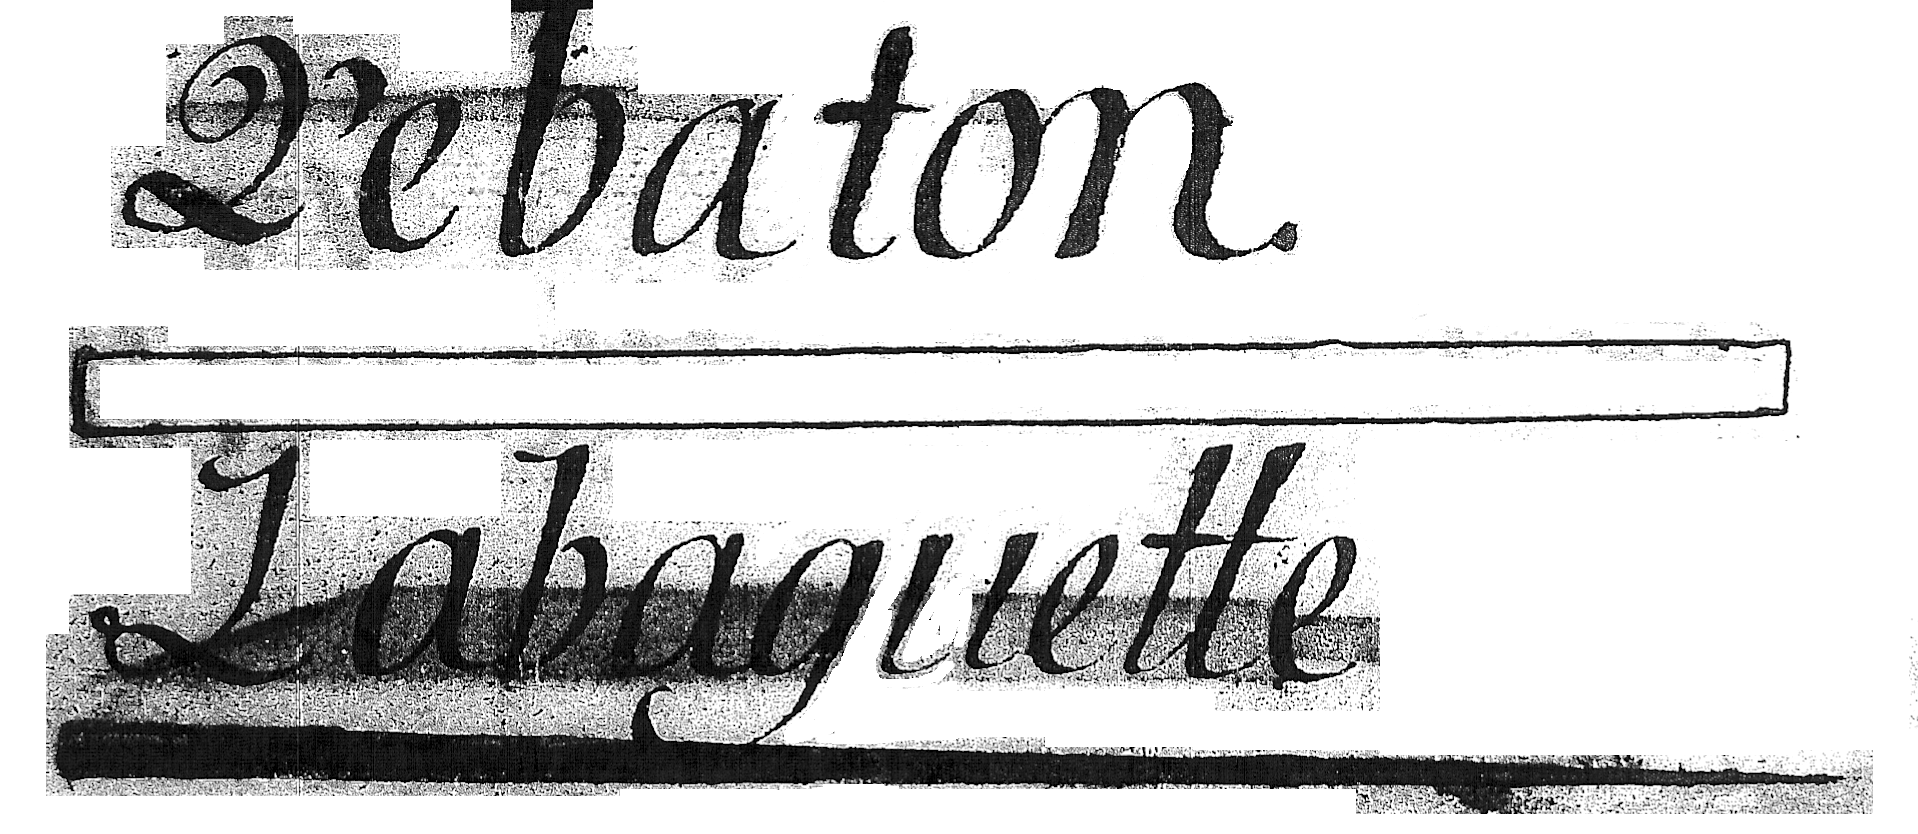 Le baton.
La baguette